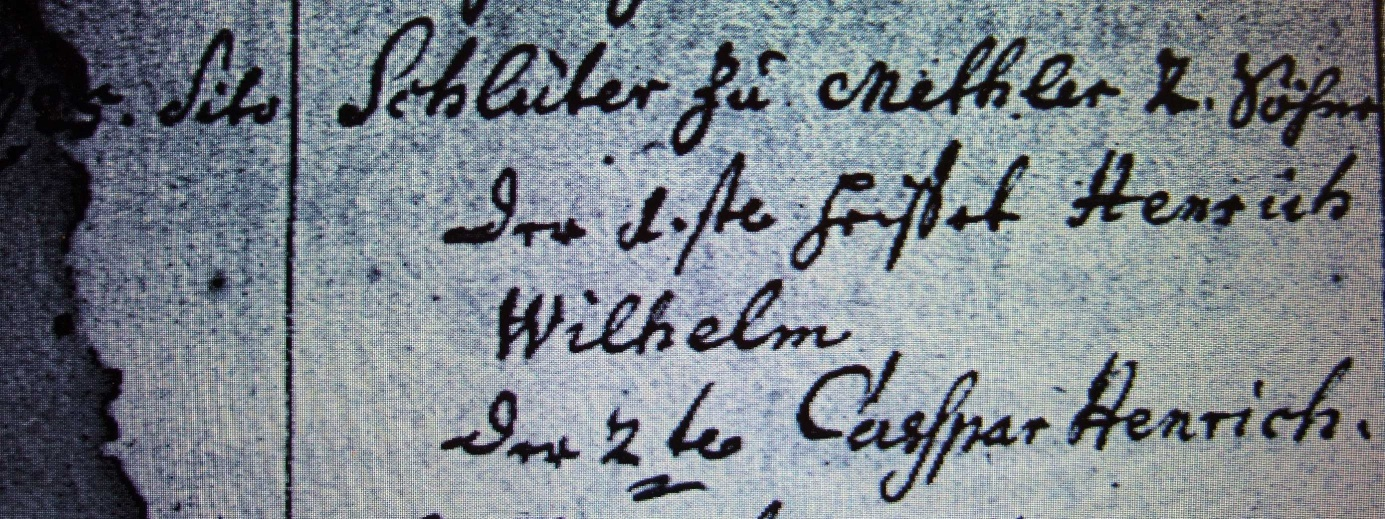 dito Schlüter zu Methler 2. Söhne
der 1.ste heisset Henrich
Wilhelm
der 2te Casspar Henrich.